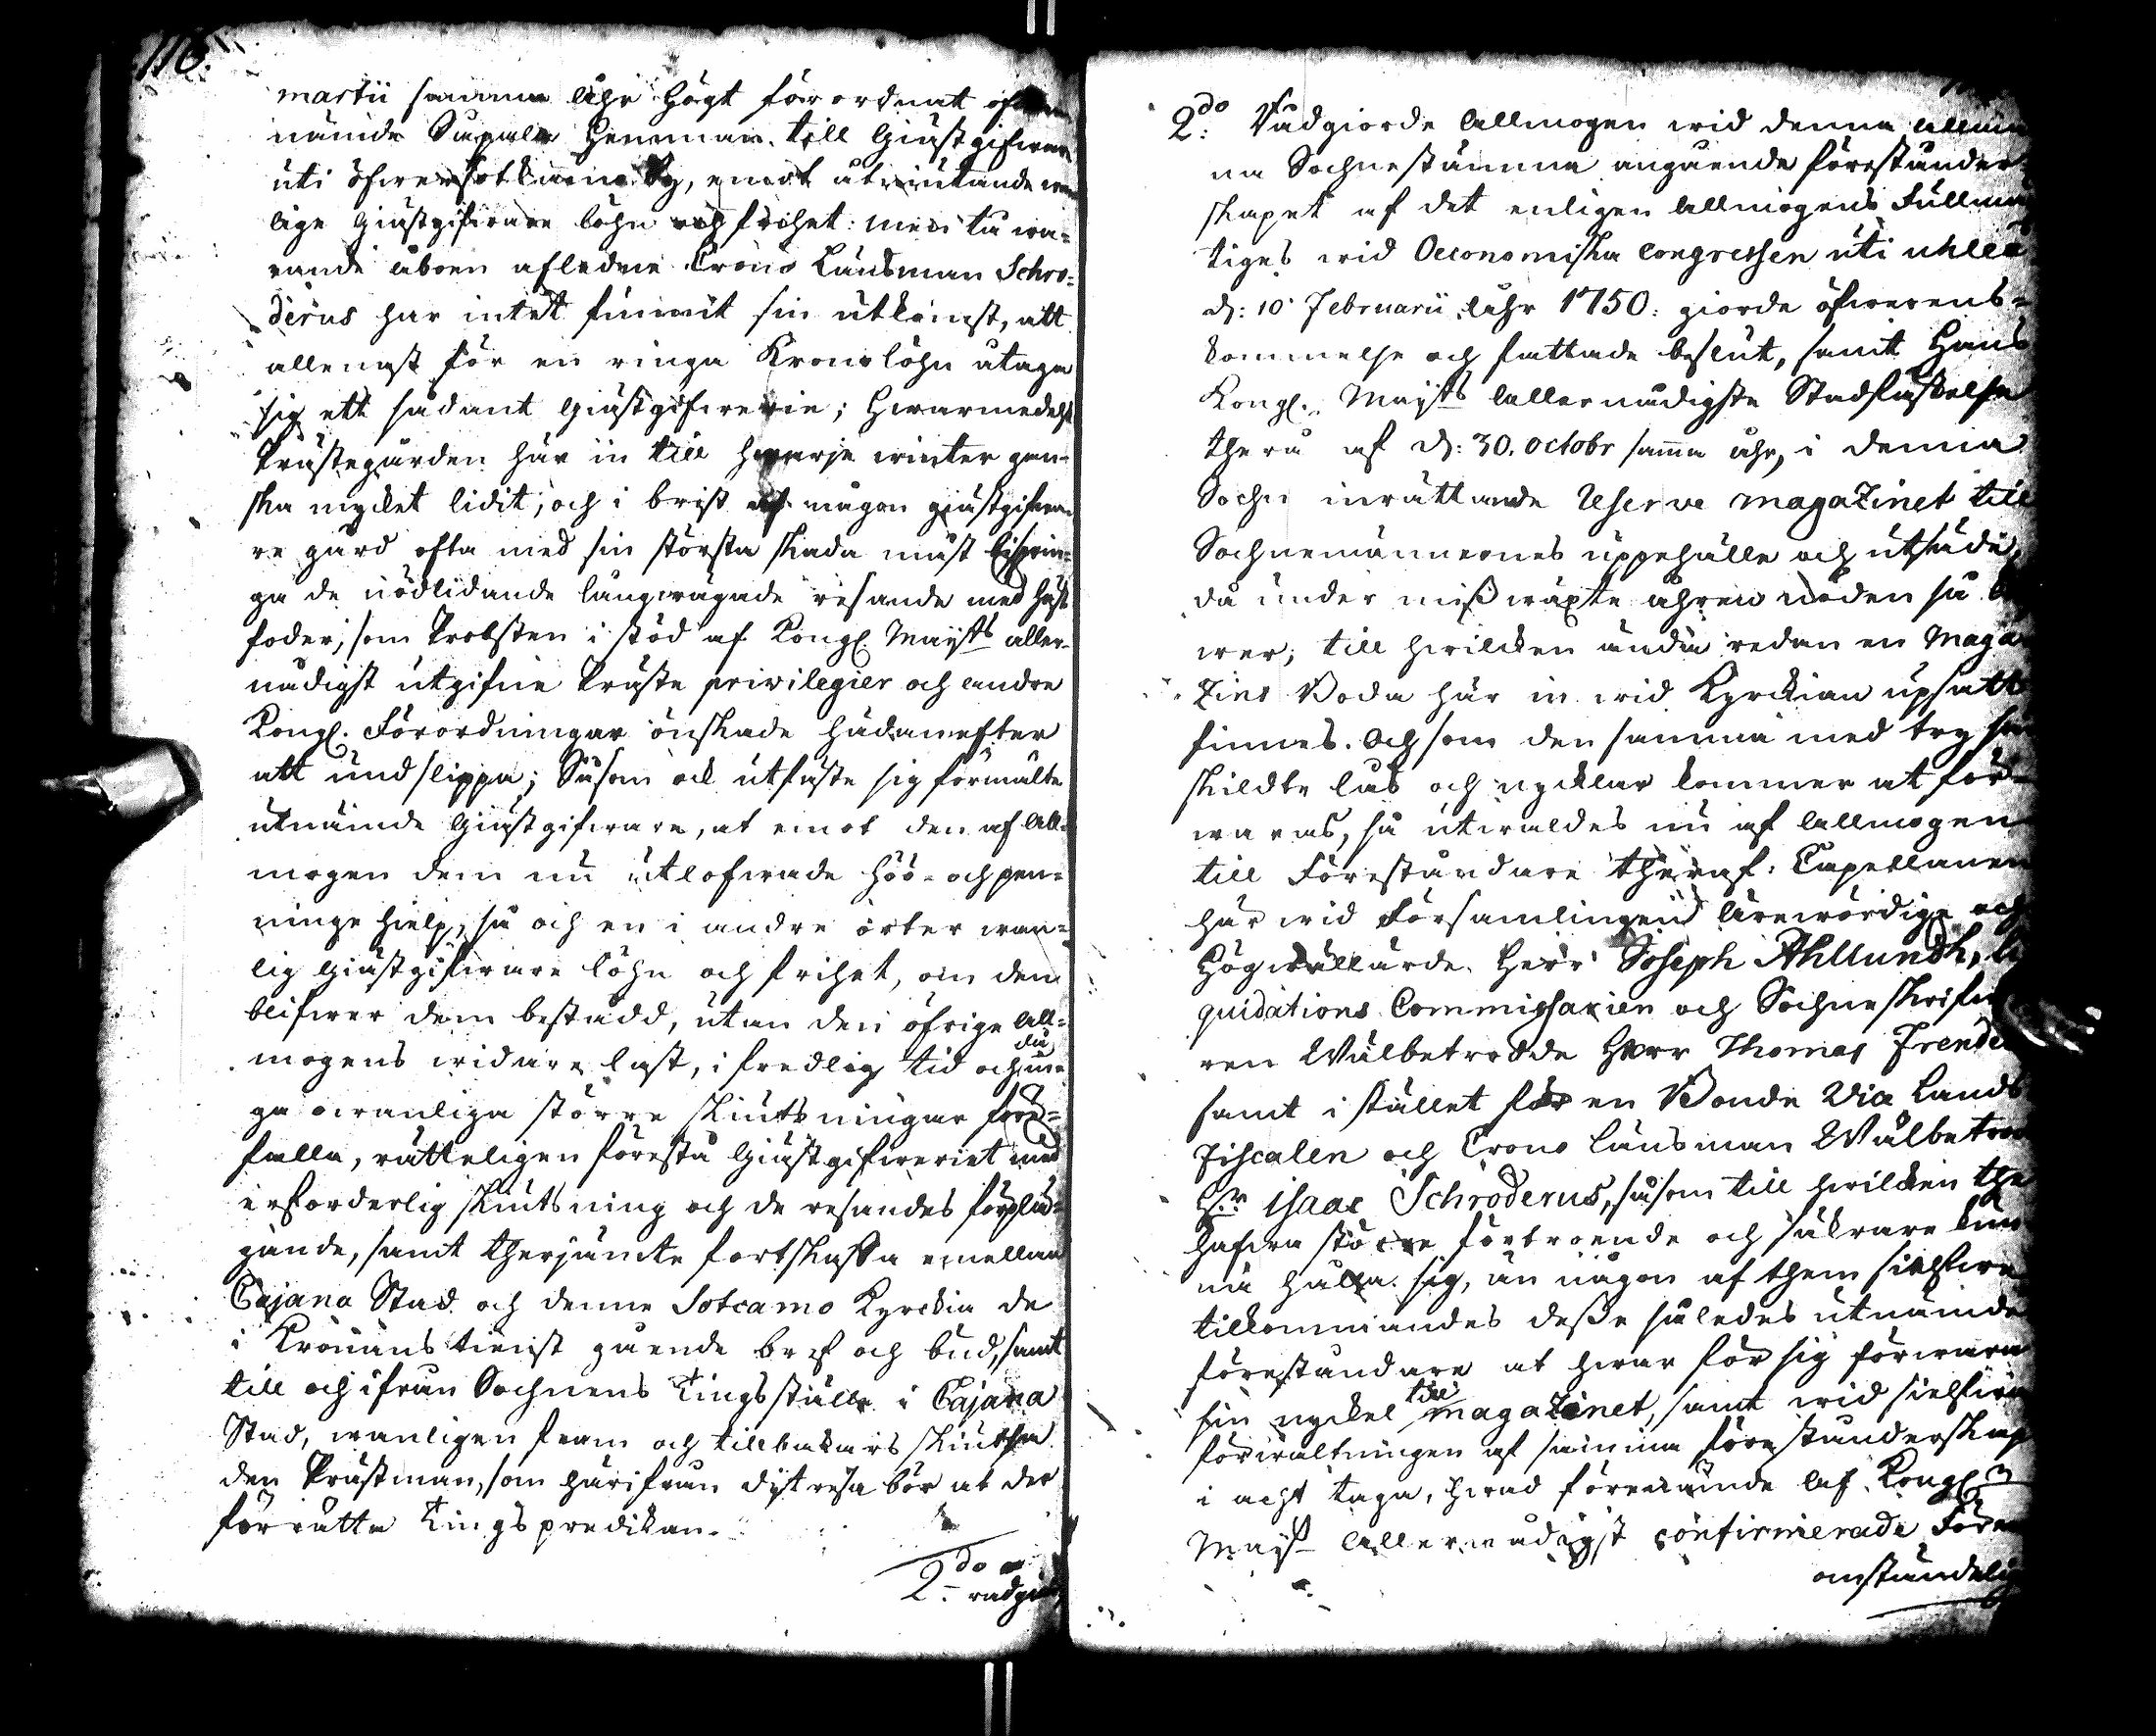 116.
martii samma åhr högt förordnat ofwan
nämde Heneman till Giästgifware
uti öfwer Sotkamo By, emot åtniutande wan
lige giästgifware löhn och frihet: men tå wa-
rande åboen afledne Crono Länsman Schro-
derus har intet funnit sin utkomst, att
allenast för en ringa Kronolöhn åtaga
sig ett sådant giästgifwerie; hwarmedelst
Prästegården här in till hwarje winter gan-
ska mycket lidit, och i brist af någon giästgifwa-
re gård ofta med sin största skada måst bispin-
ga de nödlidande långwägade resande med häst
foder, som Probsten i stöd af Kongl. Mayts aller-
nådigst utgifne Präste privilegier och andre
Kongl. Förordningar önskade hädanefter
att undslippa; Såsom ock utfäste sig förmälte
utnämde Giästgifware, at emot den af All-
mogen dem nu utlofwade höö- och pen-
ninge hielp, så och en i andre orter wan-
lig Giästgifware löhn och frihet, om den
blifwer dem bestådd, utan den öfrige All-
mogens widare last, i fredlig tid och då in-
ga owanliga större skiutsningar före-
falla, rätteligen förestå Giästgifweriet med
erforderlig skiutsning och de resandes förplä-
gande, samt therjämte fortskaffa emellan
Cajana Stad och denne Sotcamo Kyrckia de
i Kronans tienst gående bref och bud, samt
till och ifrån Sochnens Tingsställe i Cajana
Stad, wanligen fram och tillbakars skiutsa
den Prästman, som härifrån dijt resa bör at der
förrätta Tingspredikan.
2do rådgior
2do: Rådgiorde Allmogen wid denna allmä
na Sochnestämma angående förestånder-
skapet af det enligen Allmogens Fullmä
tiges wid Oeconomiska Congressen uti Uhleå
d: 10 Februarii åhr 1750: giorde öfwerens-
kommelse och fattade beslut, samt Hans
Kongl. Mayts allernådigste Stadfästelse
therå af d: 30. Octobr samma åhr, i denna
Sochn inrättande Reserve magaZinet till
Sochnemännernes uppehälle och utsäde,
då under misswäxte åhren nöden så
wer; till hwilcken ända redan en Maga
Zins Boda här in wid Kyrckian upsatt
finnes. Och som den samma med try
skildte lås och nycklar kommer at för-
waras, så utwaldes nu af Allmogen
till Föreståndare theraf: Capellanen
här wid Församlingen ärewördige och
Högwällärde Herr Joseph Ahllundh, Li
quidations Commissarien och Sochneskrifwa
ren Wälbetrodde Herr Thomas Frende
samt i stället för en Bonde Vice Lands
Fiscalen och Crono länsman Wälbetro
Hr Isaac Schroderus, såsom till hwilcken the
hafwa större förtroende och säkrare kun
na hålla sig, än någon af them sielfwa
tillkommandes desse således utnämde
föreståndare at hwar för sig förwara
sin nyckel till magaZinet, samt wid sielfwa
förwaltningen af samma föreståndersskap
i acht taga, hwad förenämde af Kongl
Mayt Allernådigst confirmerade För
omständelig